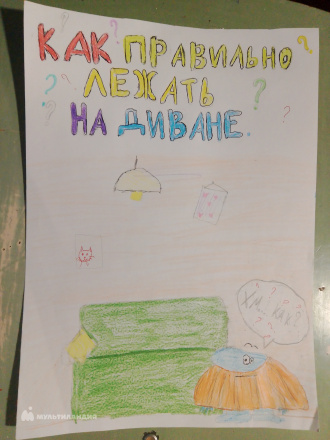 КАК ПРАВИЛЬНО
ЛЕЖАТЬ
НА ДИВАНЕ.
ХМ? КАК?
МУЛЬТИЛАНДИЯ